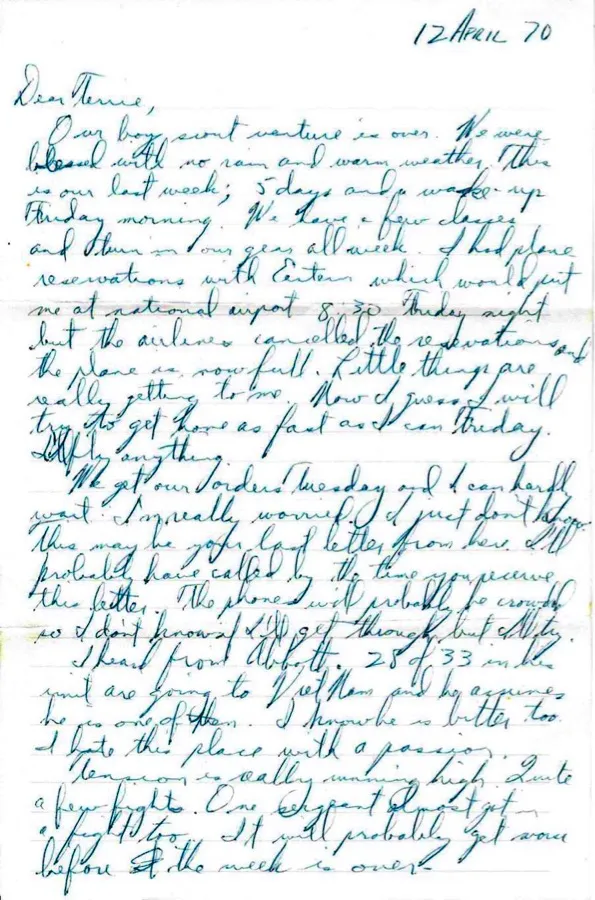 12 APRIL 70
Dear Terrie,
Our boy scout venture is over. We were
blessed with no rain and warm weather. This
is our last week; 5 days and a wake-up
Friday morning. We have a few classes
and turn in our gear all week. I had plane
reservations with Eastern which would put
me at national airport 8:30 Friday night
but the airlines cancelled the reservations and
the plane is now full. Little things are
really getting to me. Now I guess I will
try to get home as fast as I can Friday.
I'll fly anything.
We get our orders Tuesday and I can hardly
wait. I'm really worried. I just don't know
This may be your last letter from here. I'll
probably have called by the time you receive
this letter. The phones will probably be crowded
so I don't know if I'll get through, but I'll try.
I heard from Abbott. 28 of 33 in his
unit are going to Viet Nam and he assumes
he is one of them. I know he is bitter too.
I hate this place with a passion.
Tension is really running high. Quite
a few fights. One sergeant almost got in
a fight too. It will probably get worse
before the week is over-